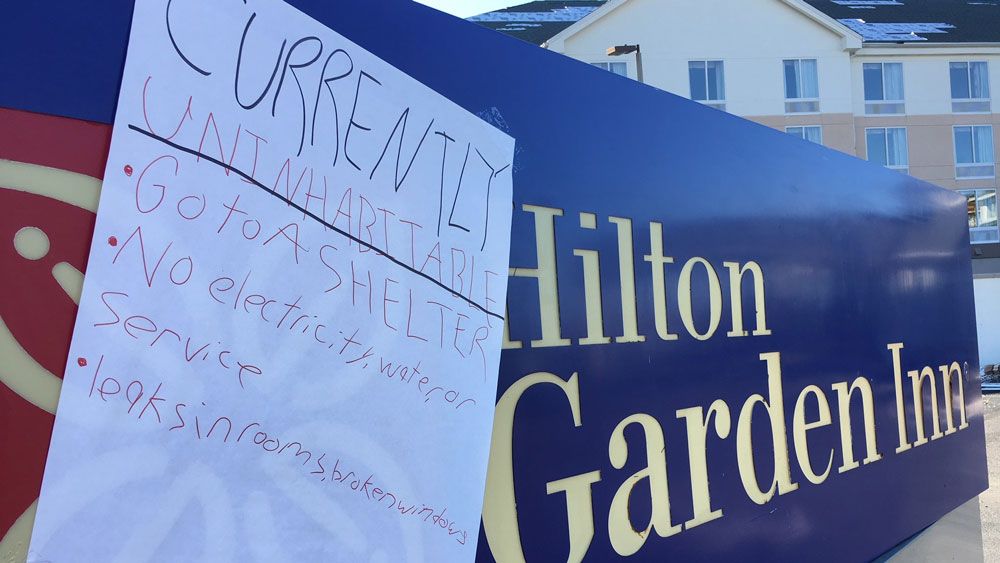 CURRENTLY
UNINHABITABLE
• Go to A SHELTER
• No electricity, water, or
service
• leaks in rooms, broken windows
Hilton
Garden Inn®